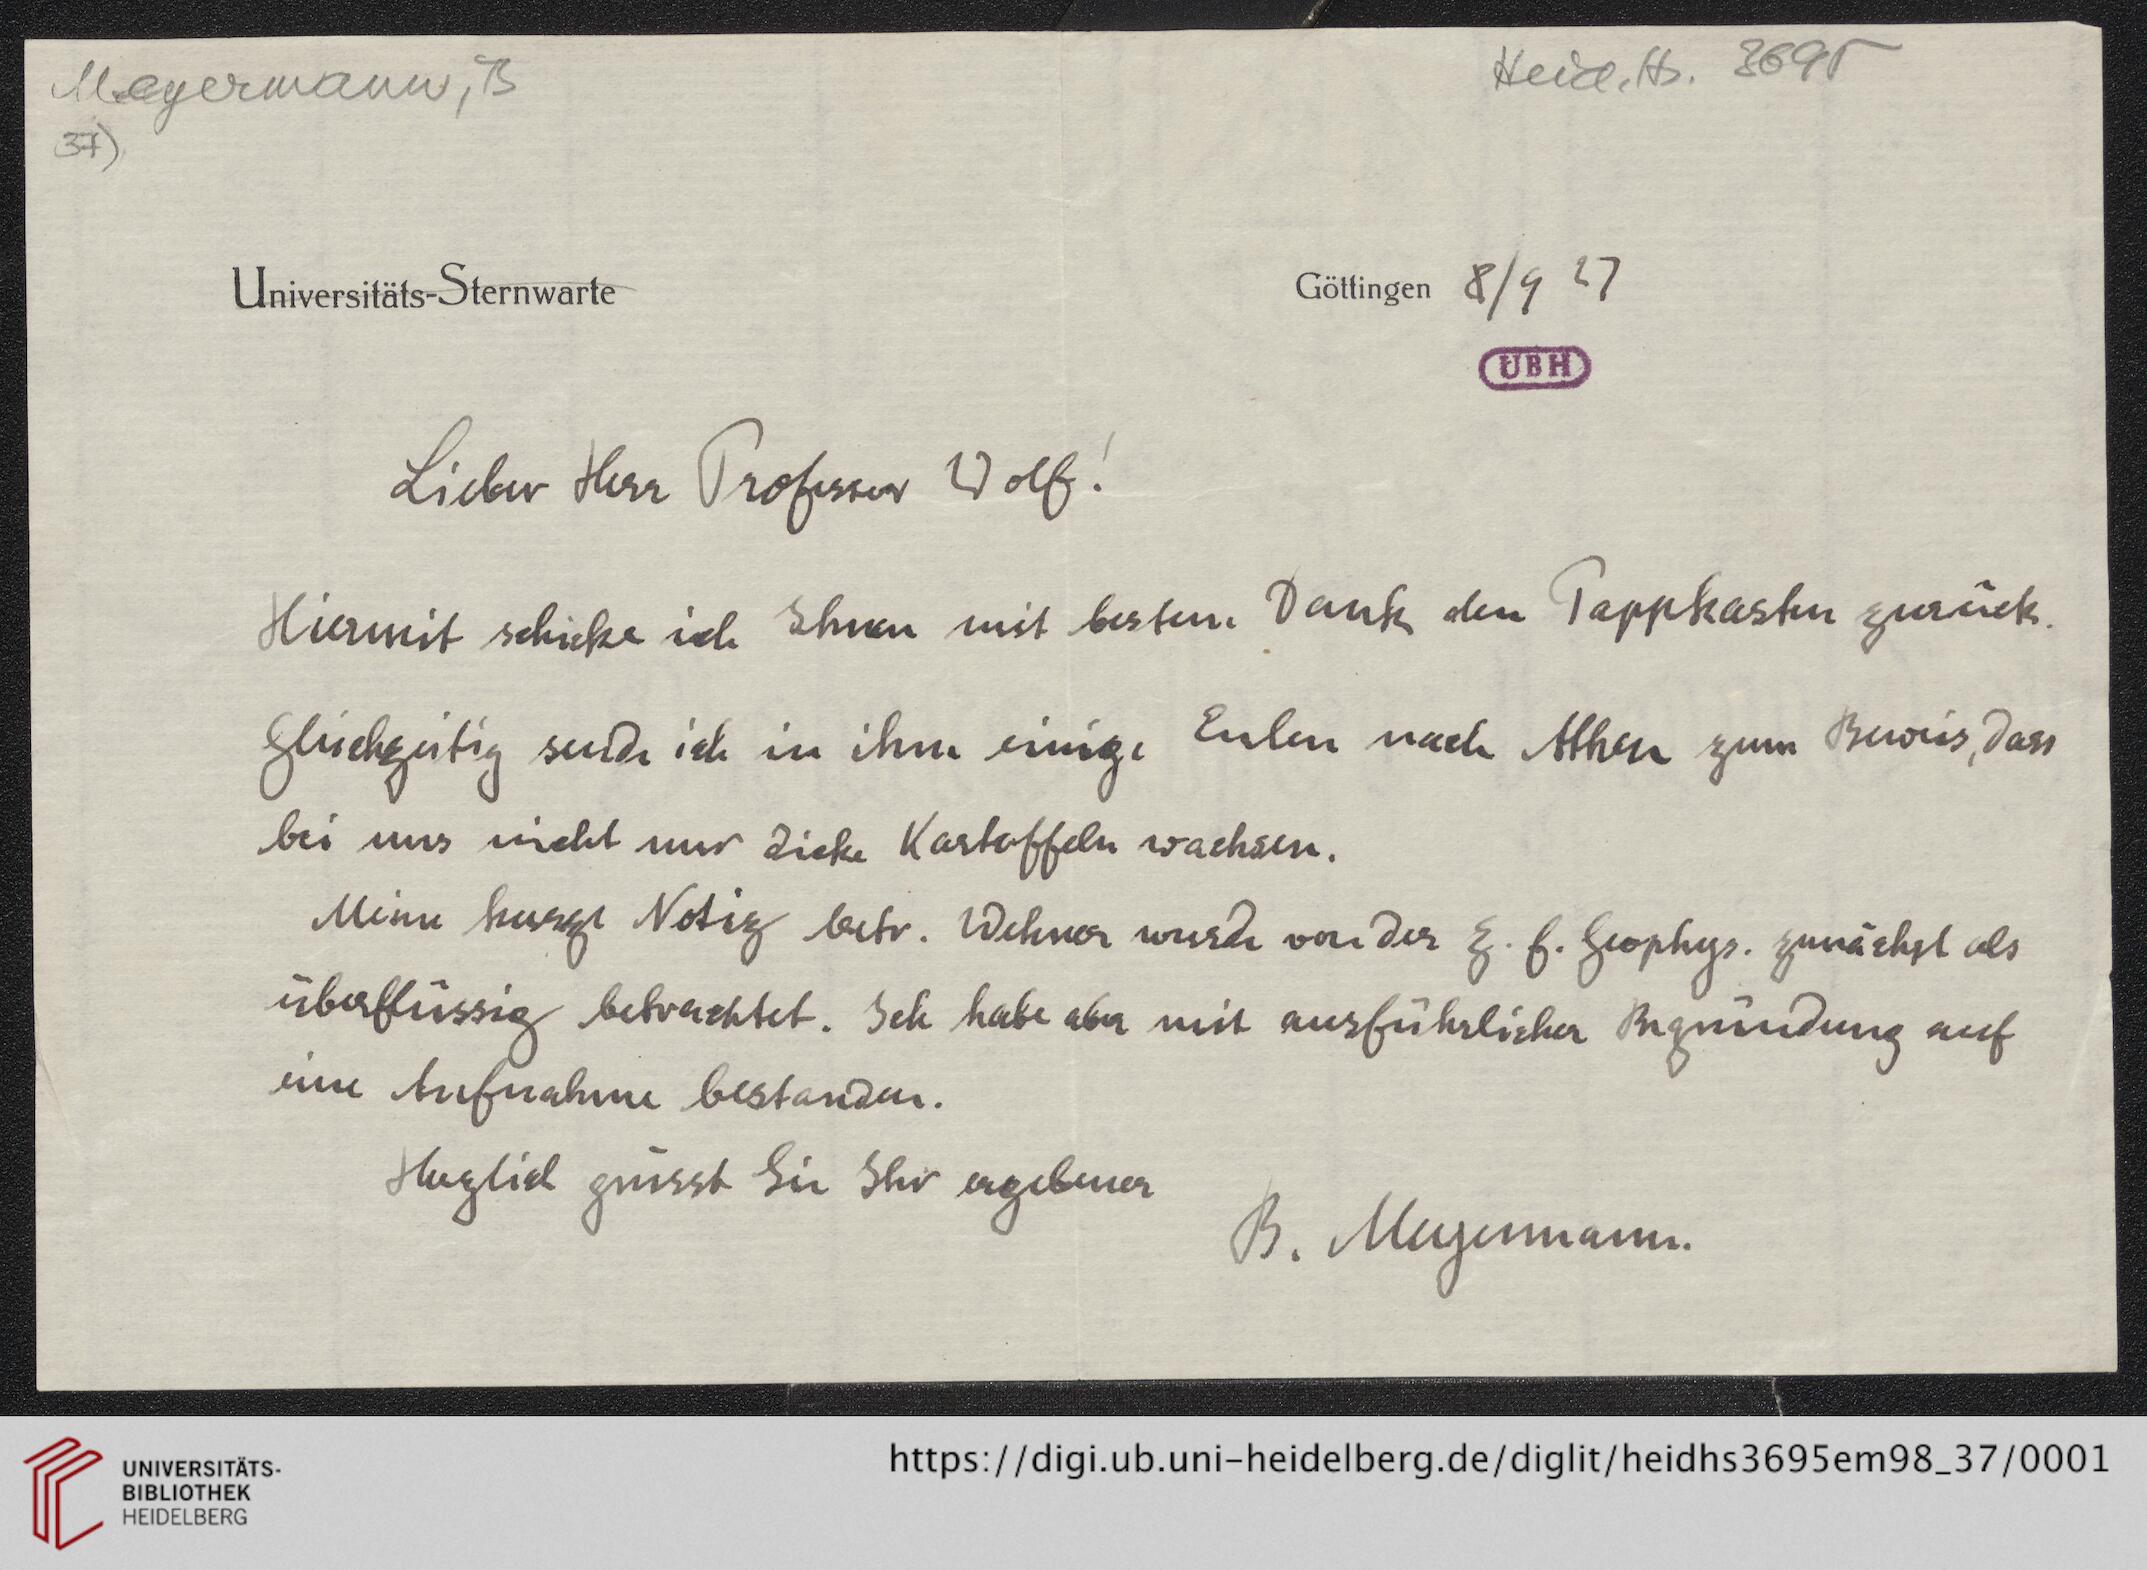 Meyermann, B
Heid. Hs. 3695
37)
Universitäts-Sternwarte
Göttingen 8/9 27
UBH
Lieber Herr Professor Wolf!
Hiermit schicke ich Ihnen mit bestem Dank den Pappkasten zurück.
Gleichzeitig sende ich in ihm einige Eulen nach Athen zum Beweis, dass
bei uns nicht nur dicke Kartoffeln wachsen.
Meine kurze Notiz betr. Wehner wurde von der Z. f. Geophys. zunächst als
überflüssig betrachtet. Ich habe aber mit ausführlicher Begründung auf
eine Aufnahme bestanden.
Herzlich grüsst Sie Ihr ergebener
B. Meyermann.
UNIVERSITÄTS-
BIBLIOTHEK
HEIDELBERG
https://digi.ub.uni-heidelberg.de/diglit/heidhs3695em98_37/0001